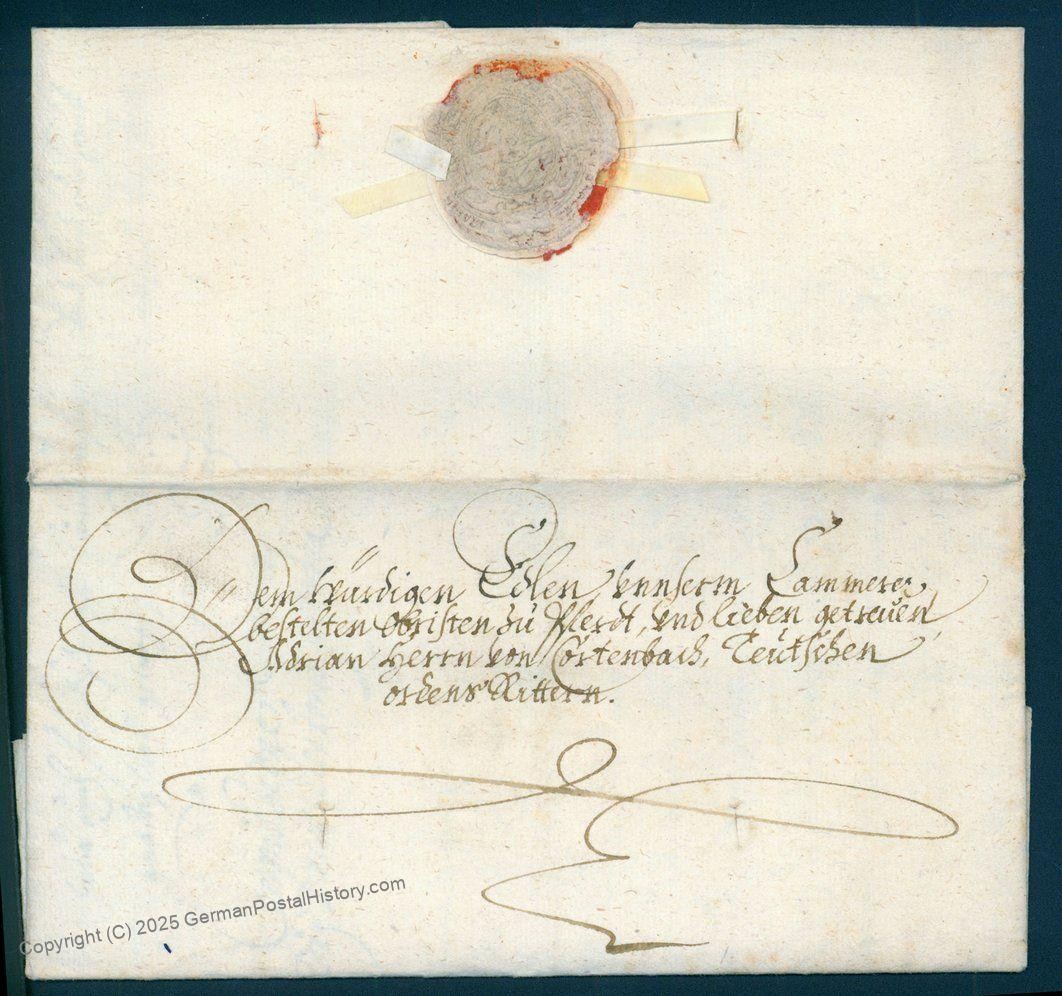 Dem Würdigen Edlen, Unnserm Cammerer,
bestelten Obristen zu Pferdt, und lieben getreuen,
Adrian Herrn von Cortenbach, Teutschen
ordens Rittern.
Copyright (C) 2025 GermanPostalHistory.com